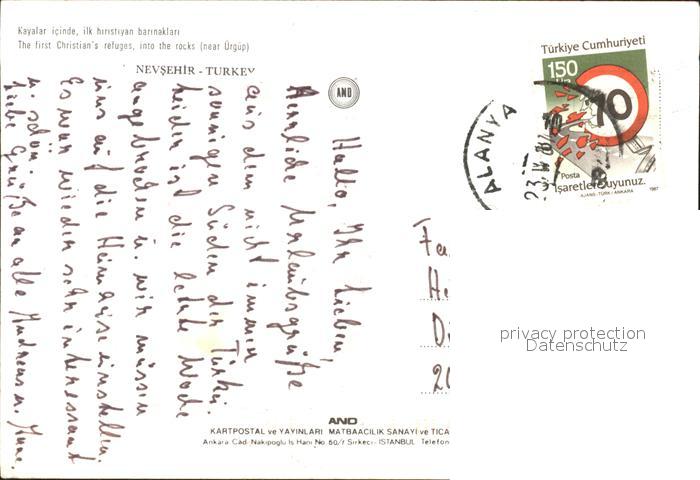 Kayalar içinde, ilk hıristıyan barınakları
The first Christian's refuges, into the rocks (near Ürgüp)
NEVŞEHİR - TURKEY
AND
Hallo, Ihr Lieben,
Herzliche Urlaubsgrüße
aus dem nicht immer
sonnigen Süden der Türkei.
Leider ist die letzte Woche
angebrochen u. wir müssen
uns auf die Heimreise einstellen.
Es war wieder sehr interessant
u. schön.
Liebe Grüße an alle Andreas u. Anne.
Türkiye Cumhuriyeti
150
LİRA
70
Posta
İşaretlere uyunuz.
AJANS-TÜRK / ANKARA
1987
ALANYA
Fa
He
Di
20
privacy protection
Datenschutz
AND
KARTPOSTAL ve YAYINLARI MATBAACILIK SANAYİ ve TİCA
Ankara Cad. Nakipoğlu İş Hanı No. 60/7 Sirkeci - İSTANBUL Telefon